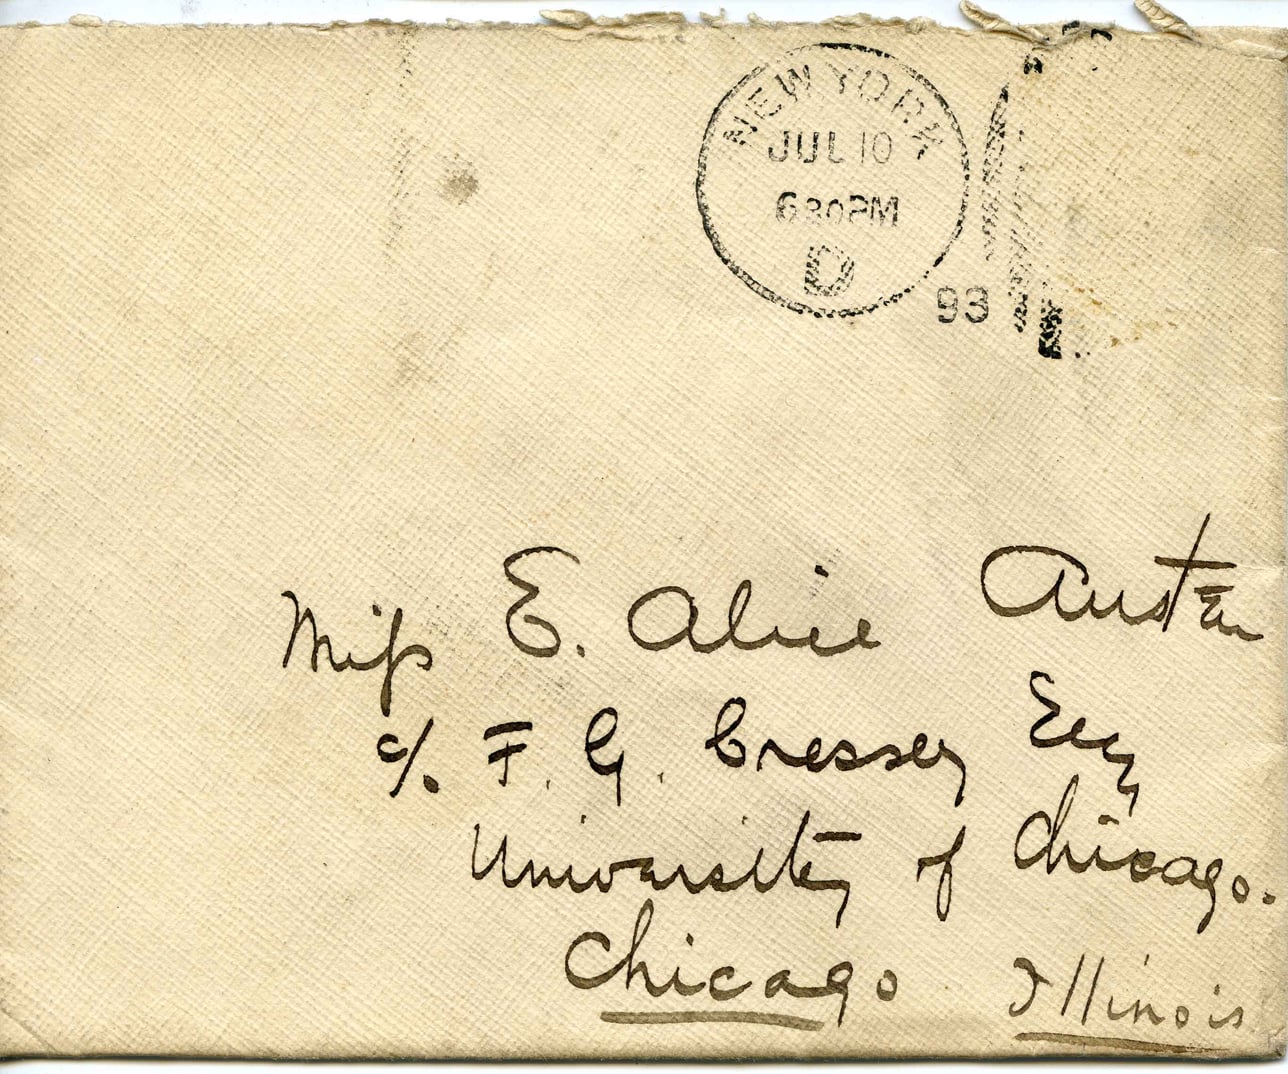 NEW YORK
JUL 10
630PM
D
93
Miss E. Alice Austen
c/o F. G. Cressey Esq
University of Chicago.
Chicago Illinois